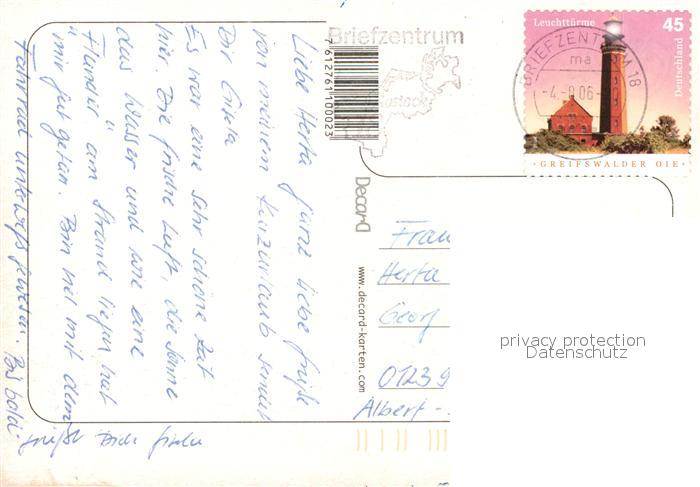 Liebe Herta ganz liebe Grüße
von meinem Kurzurlaub sendet
Dir Gisela
Es war eine sehr schöne Zeit
hier. Die frische Luft, die Sonne
das Wasser und wie eine
am Strand liegen hat
mir gut getan. Bin viel mit dem
Fahrrad unterwegs gewesen. Bis bald.
grüßt Dich
7612761100023
Decard
www.decard-karten.com
Briefzentrum
Rostock
BRIEFZENTRUM 18
ma
-4.-8.06-
Leuchttürme
45
Deutschland
·GREIFSWALDER OIE·
Frau
Herta
Georg
01239
Albert-
privacy protection
Datenschutz